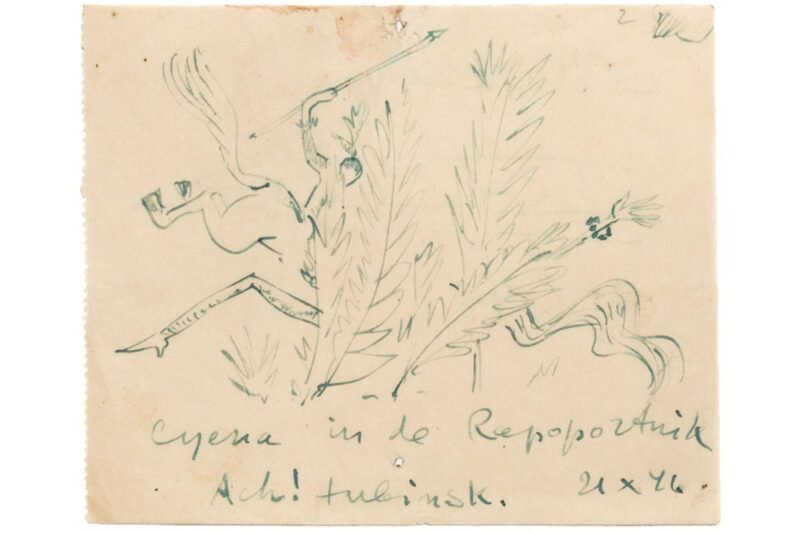 2
сцена in de Rapoportnik
Ach! tubinsk. 21 x 46